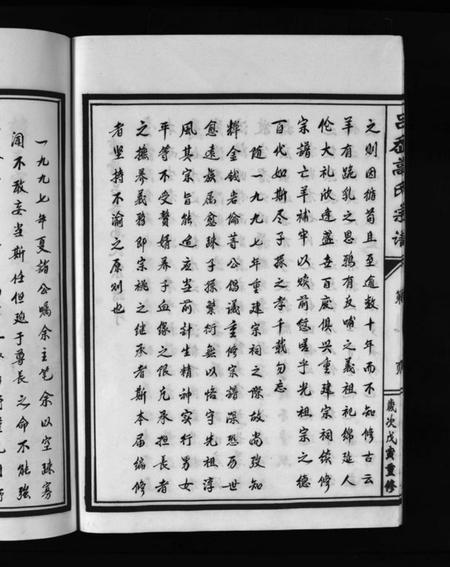 呂
高氏宗譜
歲次戊寅重修
之則因循苟且至逾數十年而不知修古云
羊有跪乳之恩鴉有反哺之義祖祀綿延人
倫大礼欣逢盛世百廢俱兴重建宗祠续修
宗譜亡羊補牢以娱前愆嗟乎光祖宗之德
百代如斯尽子孫之孝千载勿忘
隨一九九七年重建宗祠之際故尚致知
輝金钱岩倫等公倡議重修宗譜深恐历世
愈遠族属愈踈子孫繁衍無以恪守先祖淳
風其宗旨能适应当前計生精神实行男女
平等不受贅婿养子血偲之限凡承担長者
之撫养義務即宗祧之继承者斯本届编修
者坚持不渝之原则也
一九九七年夏諸公囑余主笔余以空疎寡
闻不敢妄当斯任但迫于尊長之命不能強